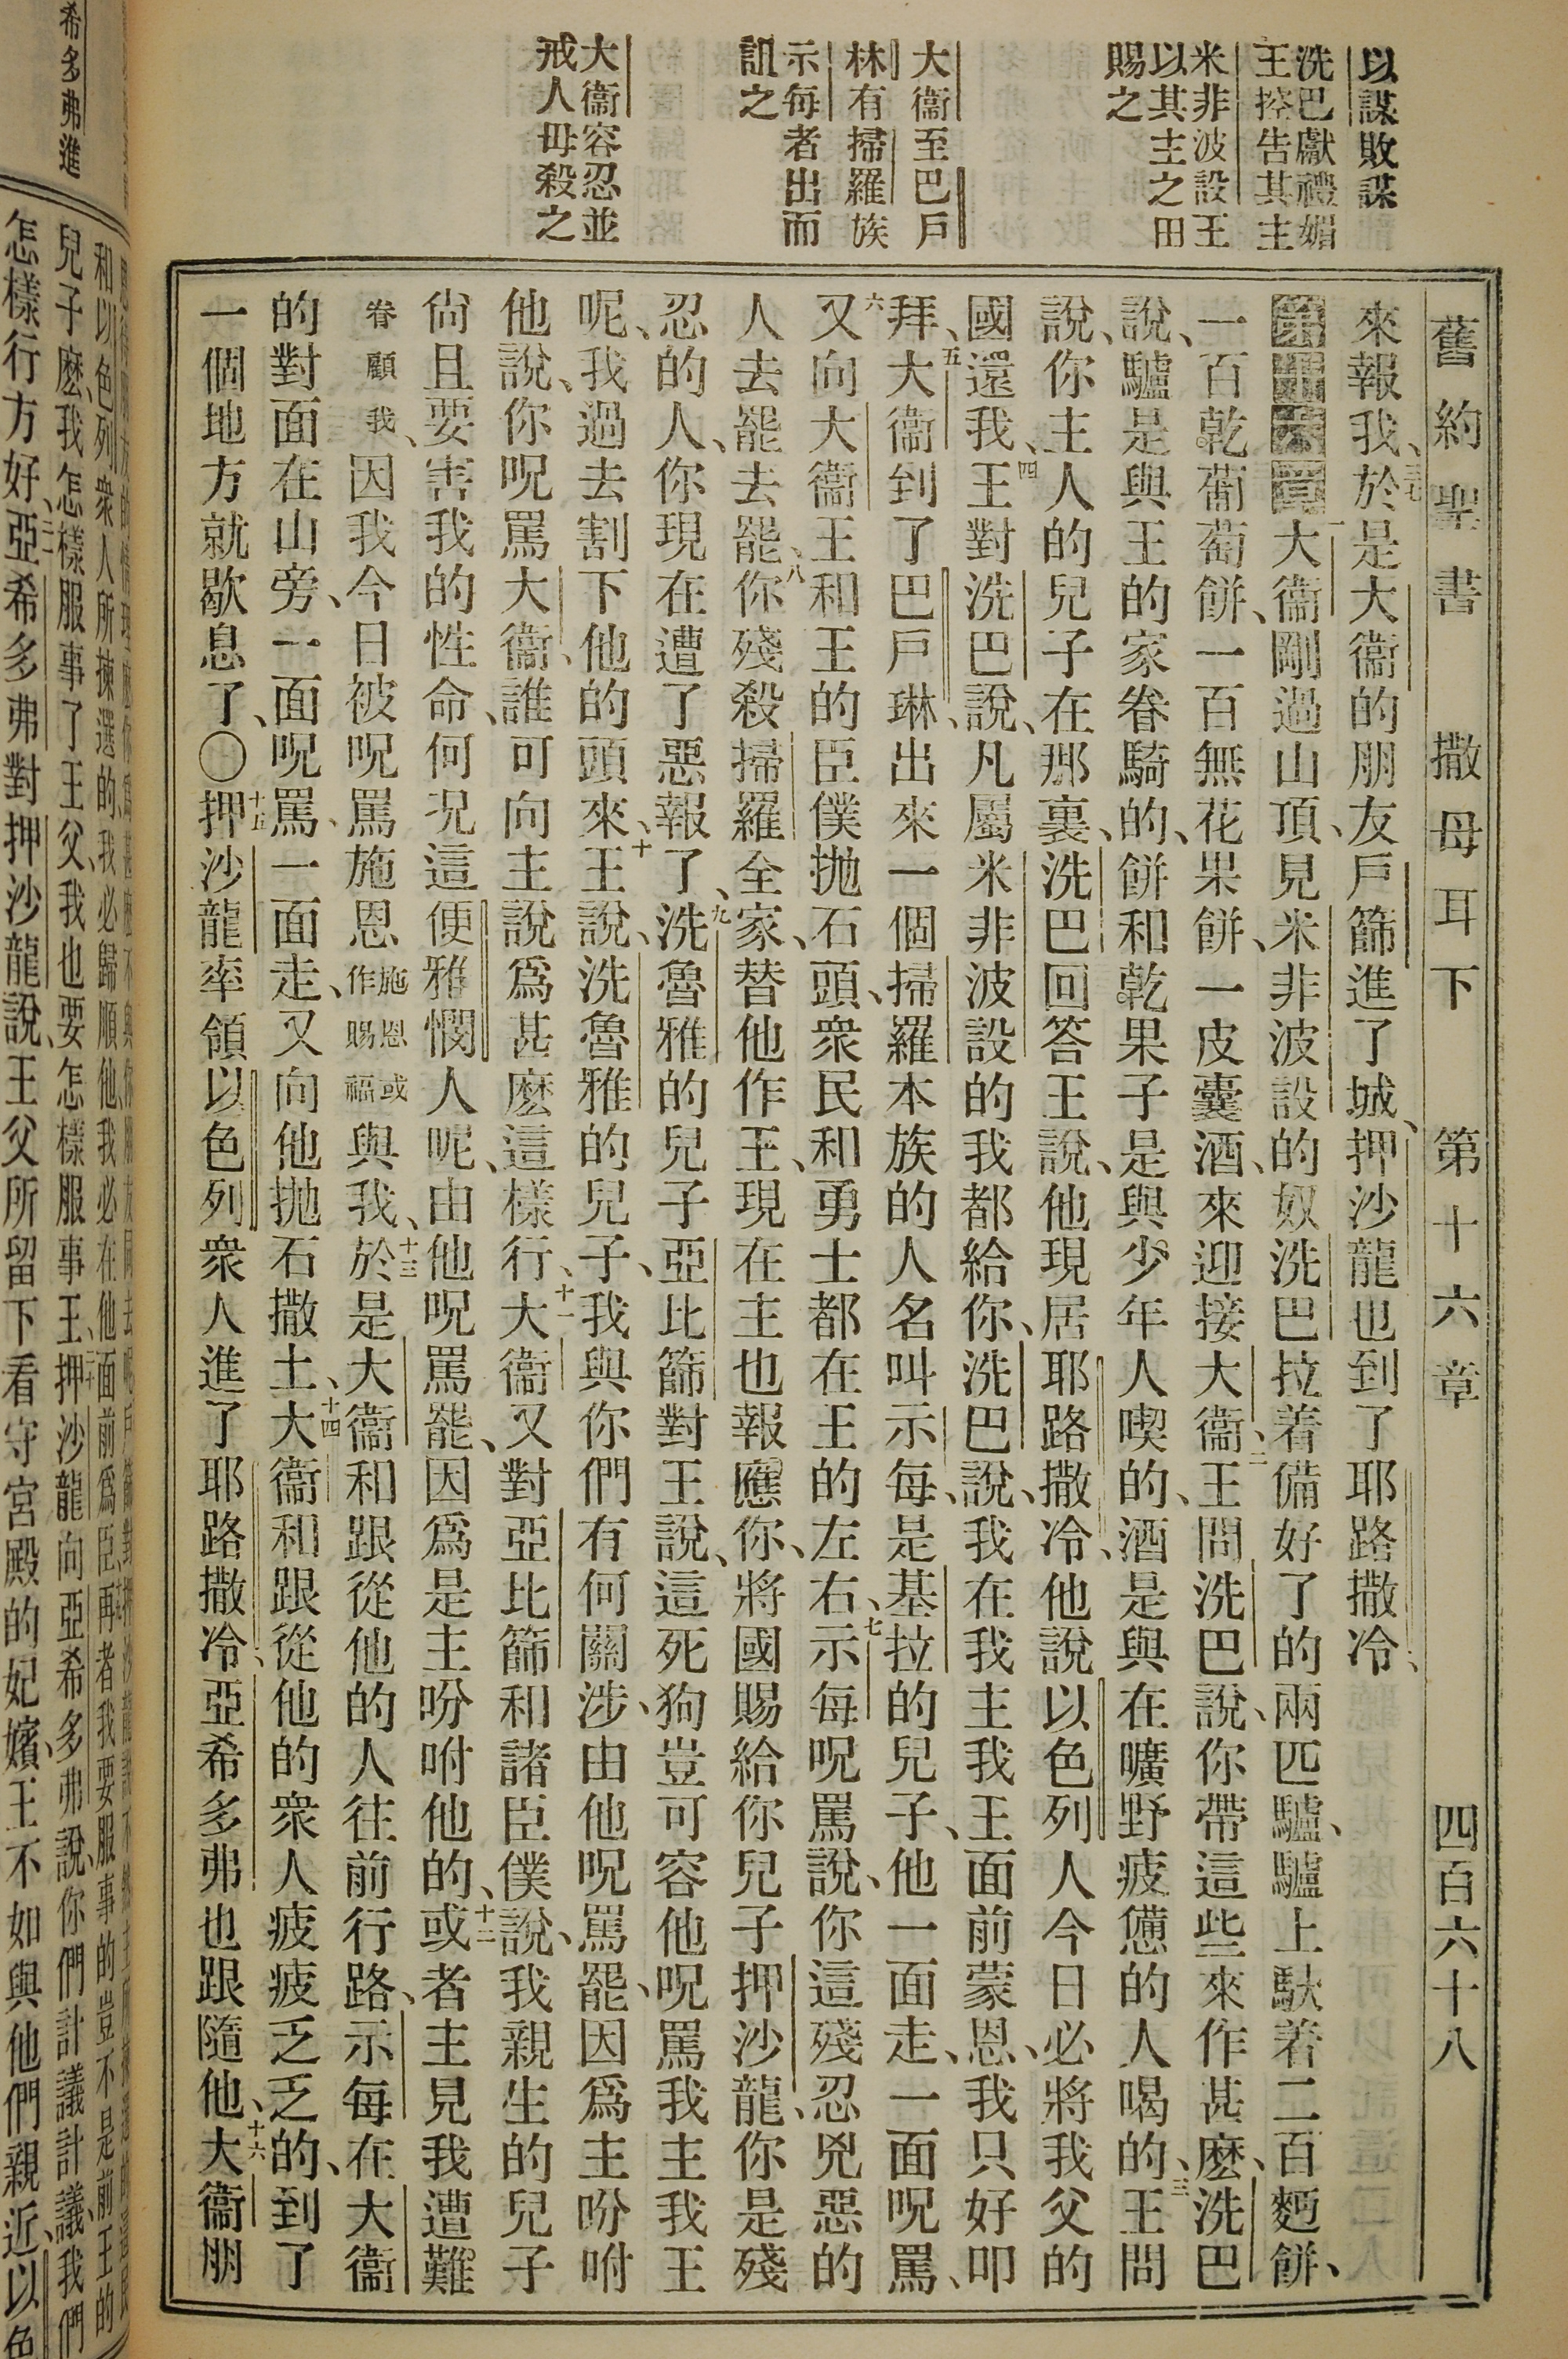 以謀敗謀
洗巴獻禮媚
王控告其主
米非波設王
以其主之田
賜之
大衞至巴戶
林有掃羅族
示每者出而
詛之
大衞容忍並
戒人毋殺之
舊約聖書 撒母耳下 第十六章 四百六十八
來報我、三七於是大衞的朋友戶篩進了城、押沙龍也到了耶路撒冷、
第十六章一大衞剛過山頂、見米非波設的奴洗巴拉着備好了的兩匹驢、驢上馱着二百麪餅、
一百乾葡萄餅、一百無花果餅、一皮囊酒、來迎接大衞、二王問洗巴說、你帶這些來作甚麽、洗巴
說、驢是與王的家眷騎的、餅和乾果子是與少年人喫的、酒是與在曠野疲憊的人喝的、三王問
說、你主人的兒子在那裏、洗巴回答王說、他現居耶路撒冷、他說以色列人今日必將我父的
國還我、四王對洗巴說、凡屬米非波設的我都給你、洗巴說、我在我主我王面前蒙恩、我只好叩
拜、五大衞到了巴戶琳、出來一個掃羅本族的人名叫示每、是基拉的兒子、他一面走、一面呪罵、
六又向大衞王和王的臣僕拋石頭、衆民和勇士都在王的左右、七示每呪罵說、你這殘忍兇惡的
人去罷去罷、八你殘殺掃羅全家、替他作王、現在主也報應你、將國賜給你兒子押沙龍、你是殘
忍的人、你現在遭了惡報了、九洗魯雅的兒子亞比篩對王說、這死狗豈可容他呪罵我主我王
呢、我過去割下他的頭來、十王說、洗魯雅的兒子、我與你們有何關涉、由他呪罵罷、因爲主吩咐
他說、你呪罵大衞、誰可向主說爲甚麽這樣行、十一大衞又對亞比篩和諸臣僕說、我親生的兒子
尙且要害我的性命、何况這便雅憫人呢、由他呪罵罷、因爲是主吩咐他的、十二或者主見我遭難
眷顧我、因我今日被呪罵施恩施恩或作賜福與我、十三於是大衞和跟從他的人往前行路、示每在大衞
的對面在山旁、一面呪罵、一面走、又向他拋石撒土、十四大衞和跟從他的衆人疲疲乏乏的、到了
一個地方就歇息了、〇十五押沙龍率領以色列衆人進了耶路撒冷、亞希多弗也跟隨他、十六大衞朋
希多弗進
兒子麽、我怎樣服事了王父、我也要怎樣服事王、二十押沙龍向亞希多弗說、你們計議計議、我們
怎樣行方好、二一亞希多弗對押沙龍說、王父所留下看守宮殿的妃嬪、王不如與他們親近、以色